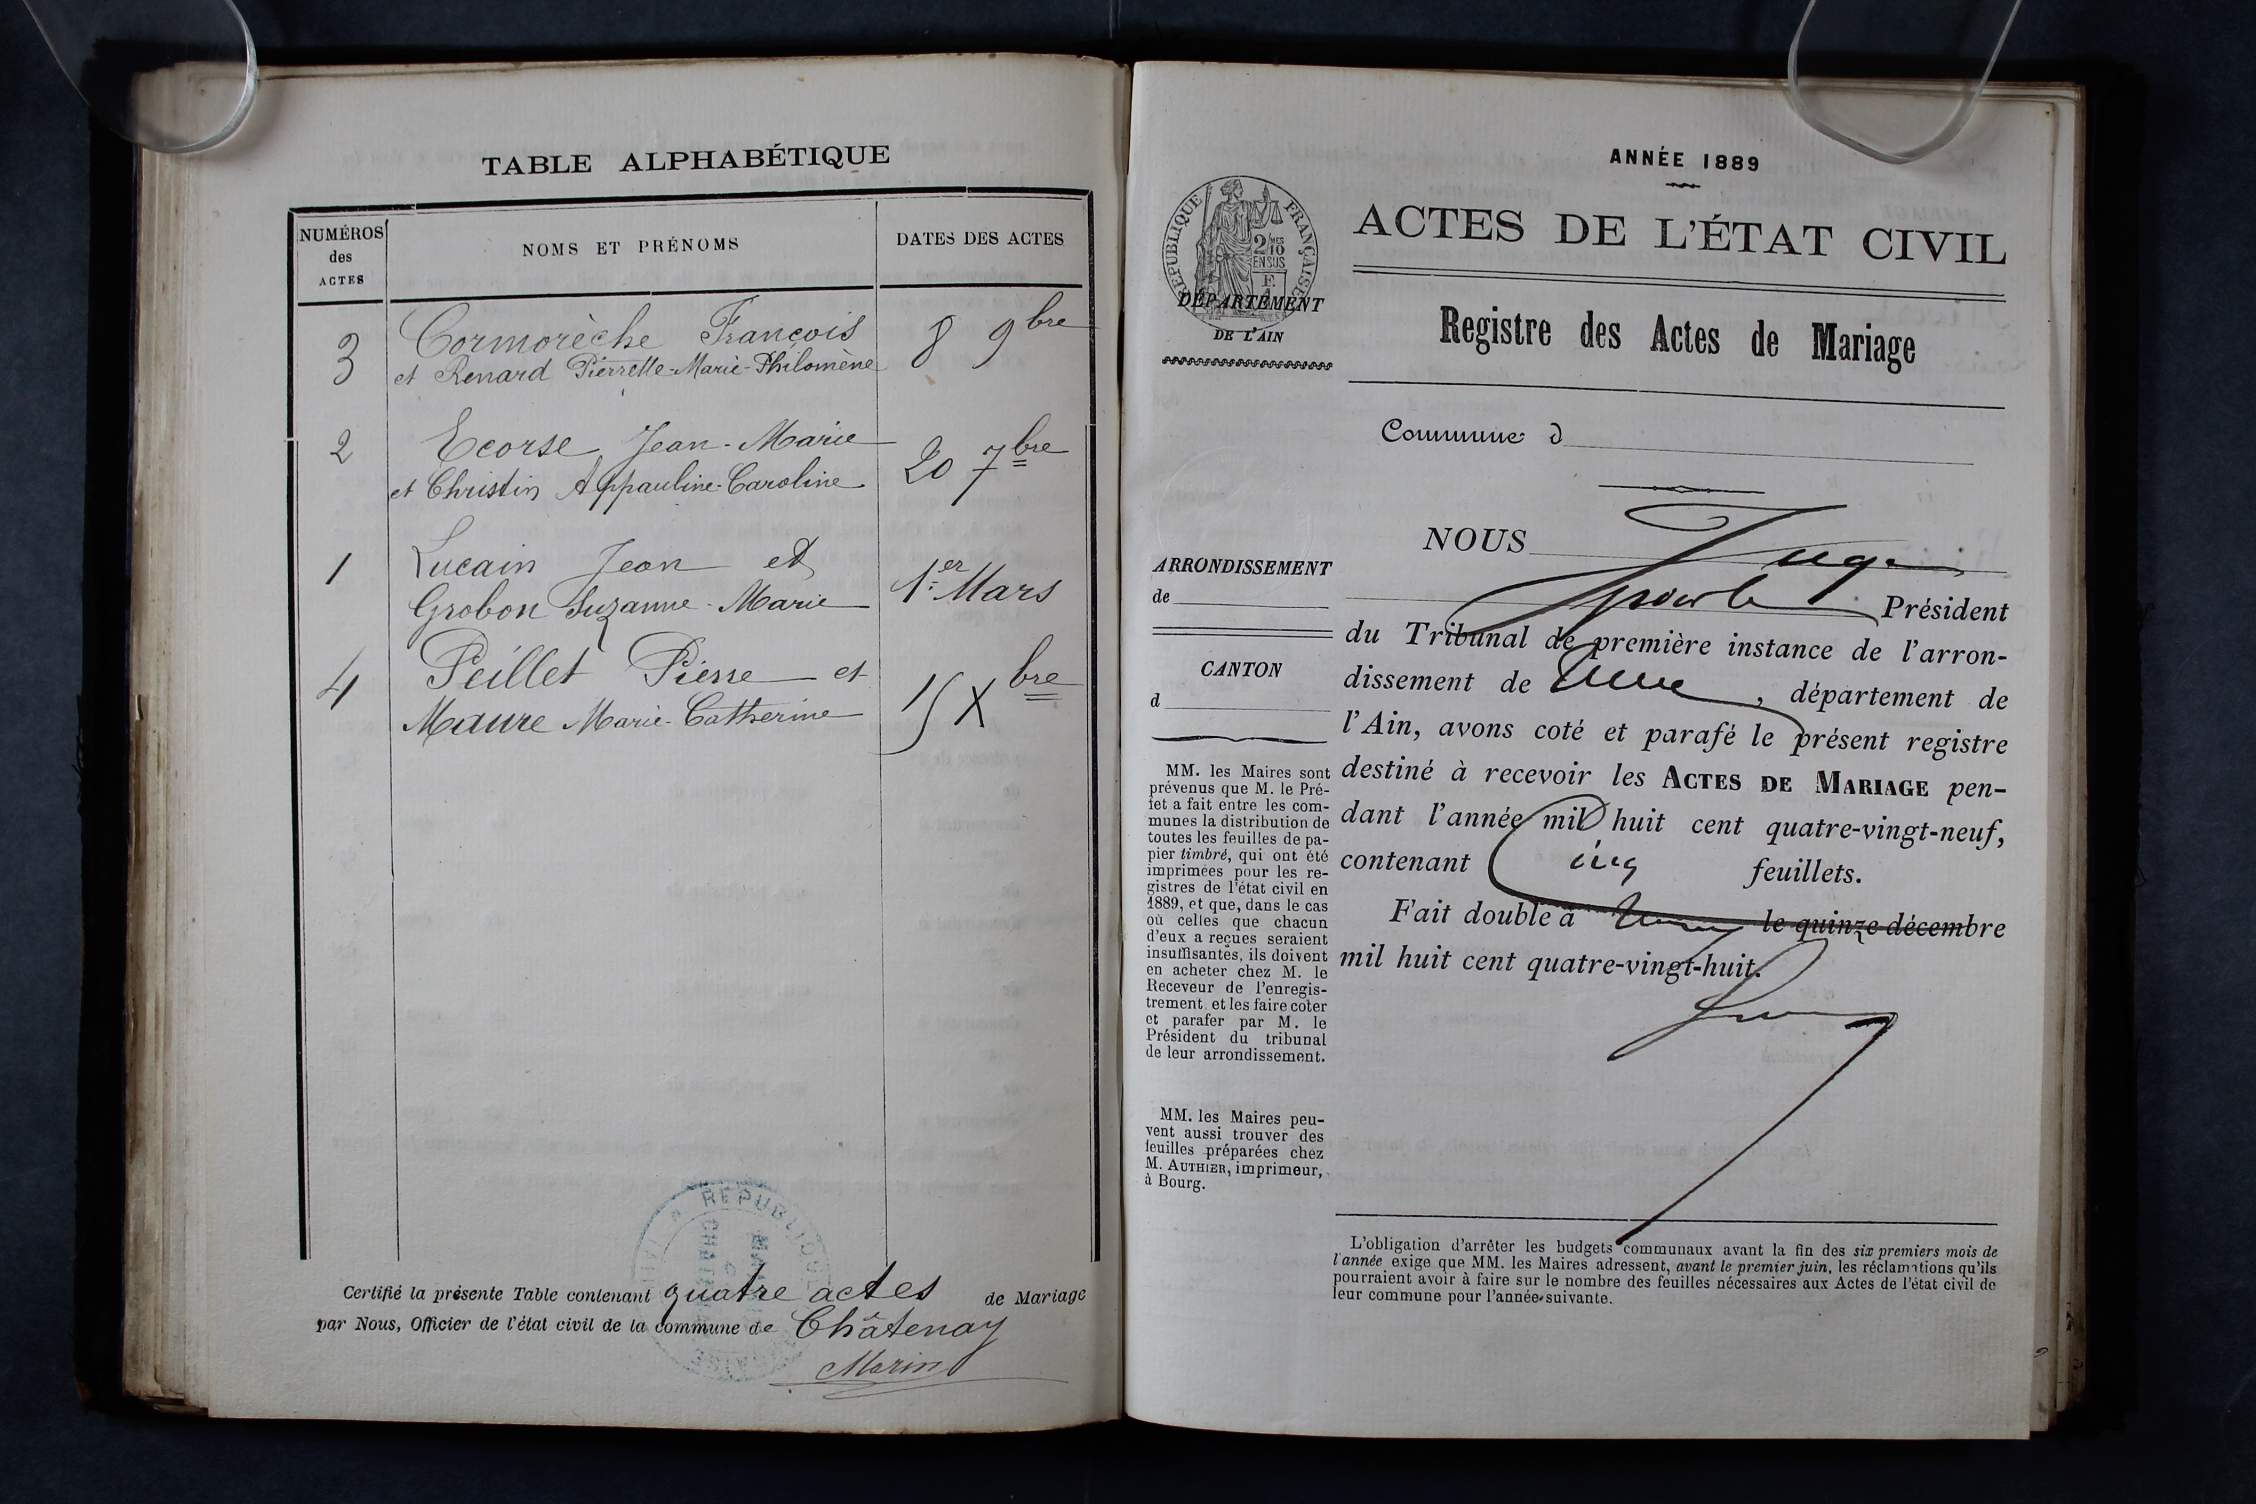 TABLE ALPHABÉTIQUE
NUMÉROS
des
ACTES
NOMS ET PRÉNOMS
DATES DES ACTES
3
Cormorèche François
et Renard Pierrette-Marie-Philomène
8 9bre
2
Ecorse Jean-Marie
et Christin Appauline-Caroline
20 7bre
1
Lucain Jean et
Grobon Suzanne-Marie
1er Mars
4
Peillet Pierre et
Maure Marie-Catherine
15 Xbre
Certifié la présente Table contenant quatre actes de Mariage
par Nous, Officier de l'état civil de la commune de Châtenay
Morin
ANNÉE 1889
RÉPUBLIQUE FRANÇAISE
2/10 MES
EN SUS
ACTES DE L'ÉTAT CIVIL
DÉPARTEMENT
DE L'AIN
Registre des Actes de Mariage
Commune d
NOUS Juge
pour le Président
du Tribunal de première instance de l'arron-
dissement de , département de
l'Ain, avons coté et parafé le présent registre
destiné à recevoir les ACTES DE MARIAGE pen-
dant l'année mil huit cent quatre-vingt-neuf,
contenant Cinq feuillets.
Fait double à le quinze décembre
mil huit cent quatre-vingt-huit.
ARRONDISSEMENT
de
CANTON
d
MM. les Maires sont
prévenus que M. le Pré-
fet a fait entre les com-
munes la distribution de
toutes les feuilles de pa-
pier timbré, qui ont été
imprimées pour les re-
gistres de l'état civil en
1889, et que, dans le cas
où celles que chacun
d'eux a reçues seraient
insuffisantes, ils doivent
en acheter chez M. le
Receveur de l'enregis-
trement et les faire coter
et parafer par M. le
Président du tribunal
de leur arrondissement.
MM. les Maires peu-
vent aussi trouver des
feuilles préparées chez
M. AUTHIER, imprimeur,
à Bourg.
L'obligation d'arrêter les budgets communaux avant la fin des six premiers mois de
l'année exige que MM. les Maires adressent, avant le premier juin, les réclamations qu'ils
pourraient avoir à faire sur le nombre des feuilles nécessaires aux Actes de l'état civil de
leur commune pour l'année suivante.